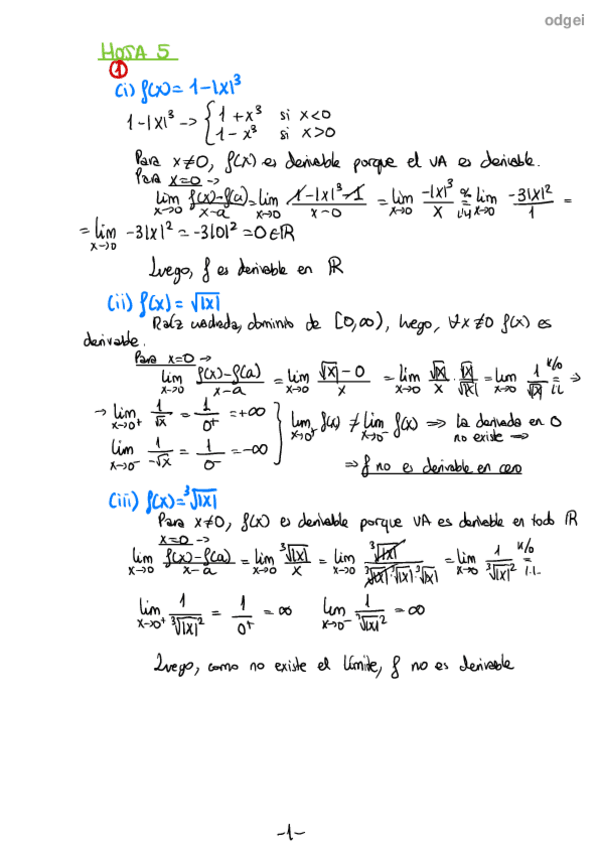 odgei
HOJA 5
①
(i) f(x) = 1-|x|³
1-|x|³ -> { 1+x³ si x<0
1-x³ si x>0
Para x≠0, f(x) es derivable porque el VA es derivable.
Para x=0 ->
lim x→0 f(x)-f(a)/x-a = lim x→0 1-|x|³-1/x-0 = lim x→0 -|x|³/x = lim x→0 -3|x|²/1 =
= lim x→0 -3|x|² = -3|0|² = 0 ∈ ℝ
Luego, f es derivable en ℝ
(ii) f(x) = √|x|
Raíz cuadrada, dominio de [0,∞), luego, ∀x≠0 f(x) es
derivable.
Para x=0 →
lim x→0 f(x)-f(a)/x-a = lim x→0 √|x|-0/x = lim x→0 √|x|/x · √|x|/√|x| = lim x→0 1/√|x| k/0 = i.L →
→ lim x→0⁺ 1/√x = 1/0⁺ = +∞
lim x→0⁻ 1/-√x = 1/0⁻ = -∞ } lim x→0⁺ f(x) ≠ lim x→0⁻ f(x) ⇒ la derivada en 0
no existe ⇒
⇒ f no es derivable en cero
(iii) f(x) = ³√|x|
Para x≠0, f(x) es derivable porque VA es derivable en todo ℝ
x=0 ->
lim x→0 f(x)-f(a)/x-a = lim x→0 ³√|x|/x = lim x→0 ³√|x|/³√|x|·³√|x|·³√|x| = lim x→0 1/³√|x|² k/0 = i.L.
lim x→0⁺ 1/³√|x|² = 1/0⁺ = ∞ lim x→0⁻ 1/³√|x|² = ∞
Luego, como no existe el límite, f no es derivable
-1-